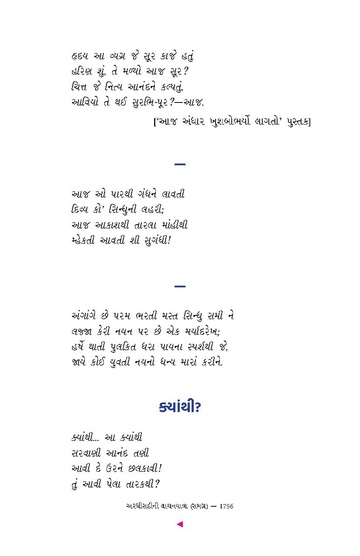 હૃદય આ વ્યગ્ર જે સૂર કાજે હતું
હરિણ શું, તે મળ્યો આજ સૂર?
ચિત્ત જે નિત્ય આનંદને કલ્પતું,
આવિયો તે થઈ સુરભિ-પૂર?—આજ.
['આજ અંધાર ખુશબોભર્યો લાગતો' પુસ્તક]
—
આજ ઓ પારથી ગંધને લાવતી
દિવ્ય કો' સિન્ધુની લહરી;
આજ આકાશથી તારલા માંહીથી
મ્હેકતી આવતી શી સુગંધી!
—
અંગાંગે છે પરમ ભરતી મસ્ત સિન્ધુ સમી ને
લજ્જા કેરી નયન પર છે એક મર્યાદરેખ;
હર્ષે થાતી પુલકિત ધરા પાયના સ્પર્શથી જે,
જાયે કોઈ યુવતી નયનો ધન્ય મારાં કરીને.
ક્યાંથી?
ક્યાંથી... આ ક્યાંથી
સરવાણી આનંદ તણી
આવી દે ઉરને છલકાવી!
તું આવી પેલા તારકથી?
અરધીસદીની વાચનયાત્રા (સમગ્ર) — 1756